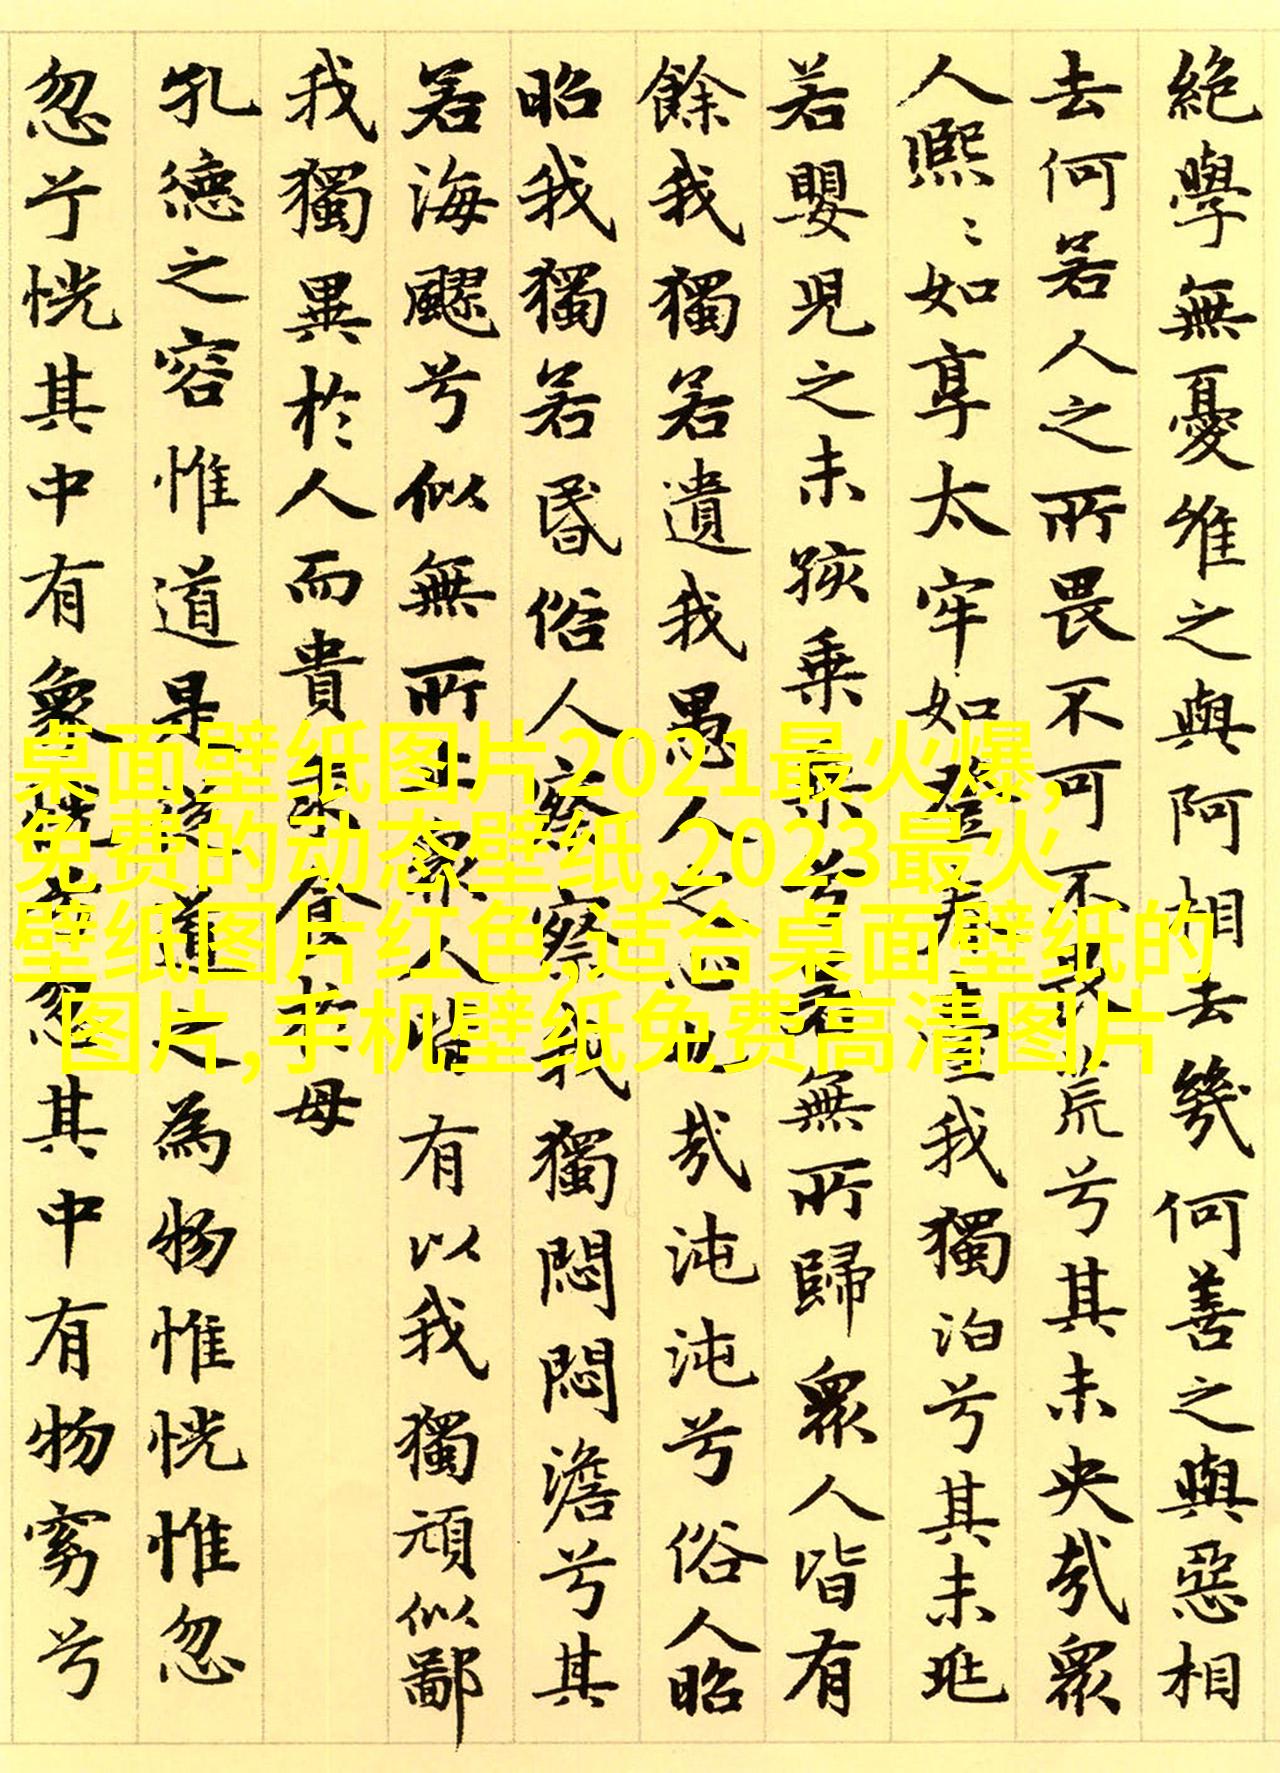 絶學無憂唯之與阿相去幾何善之與惡相
去何若人之所畏不可不畏荒兮其未央哉衆
人熙〻如享太牢如登春臺我獨泊兮其未兆
若嬰兒之未孩乗乗兮若無所歸衆人皆有
餘我獨若遺我愚人之心也哉沌沌兮俗人昭
昭我獨若昬俗人察察我獨悶悶澹兮其
若海飂兮似無所止衆人皆有以我獨頑似鄙
我獨異於人而貴求食於母
孔德之容惟道是從道之為物惟恍惟忽
忽兮恍其中有象恍兮忽其中有物窈兮
桌面壁纸图片2021最火爆,
免费的动态壁纸,2023最火
壁纸图片红色,适合桌面壁纸的
图片,手机壁纸免费高清图片